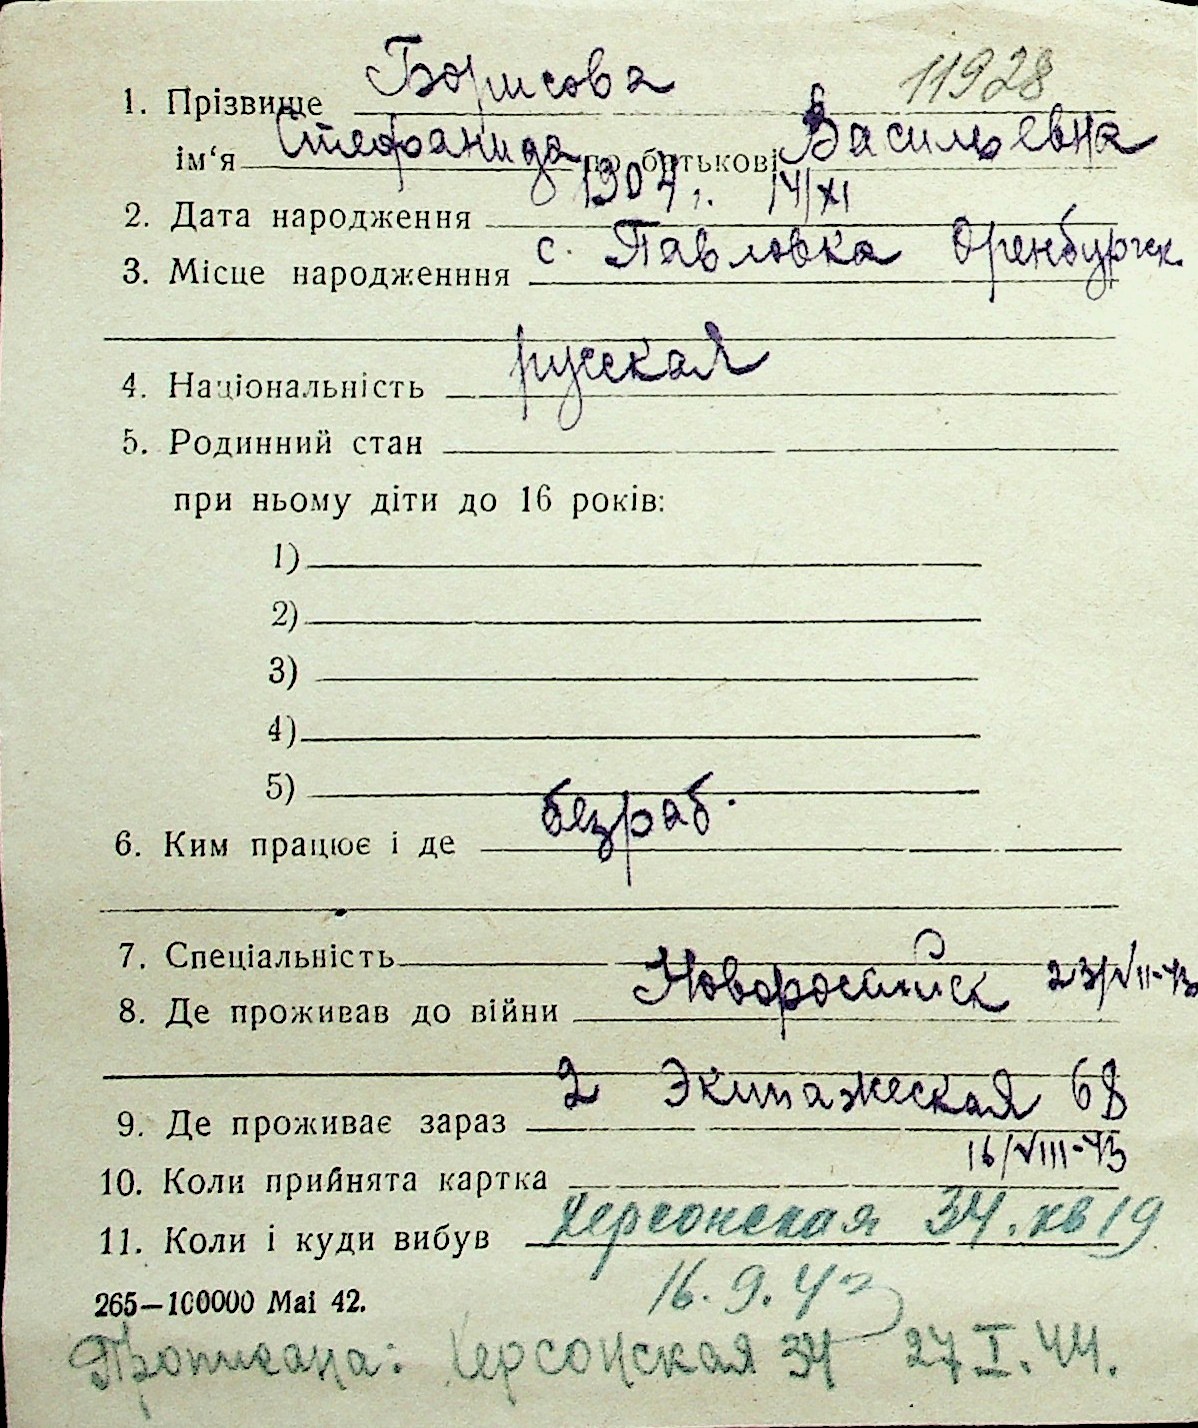 11928
1. Прізвище Борисова
ім‘я Стефанида по батькові Васильевна
2. Дата народження 1904 г. 14/XI
3. Місце народженння с. Павловка Оренбургск.
4. Національність русская
5. Родинний стан
при ньому діти до 16 років:
1)
2)
3)
4)
5)
6. Ким працює і де безраб.
7. Спеціальність
8. Де проживав до війни Новоросийск 23/VII-43
9. Де проживає зараз 2 Экипажеская 68
10. Коли прийнята картка 16/VIII-43
11. Коли і куди вибув Херсонская 34. кв 19
16. 9. 43
265—100000 Mai 42.
Прописана: Херсонская 34 27 I. 44.